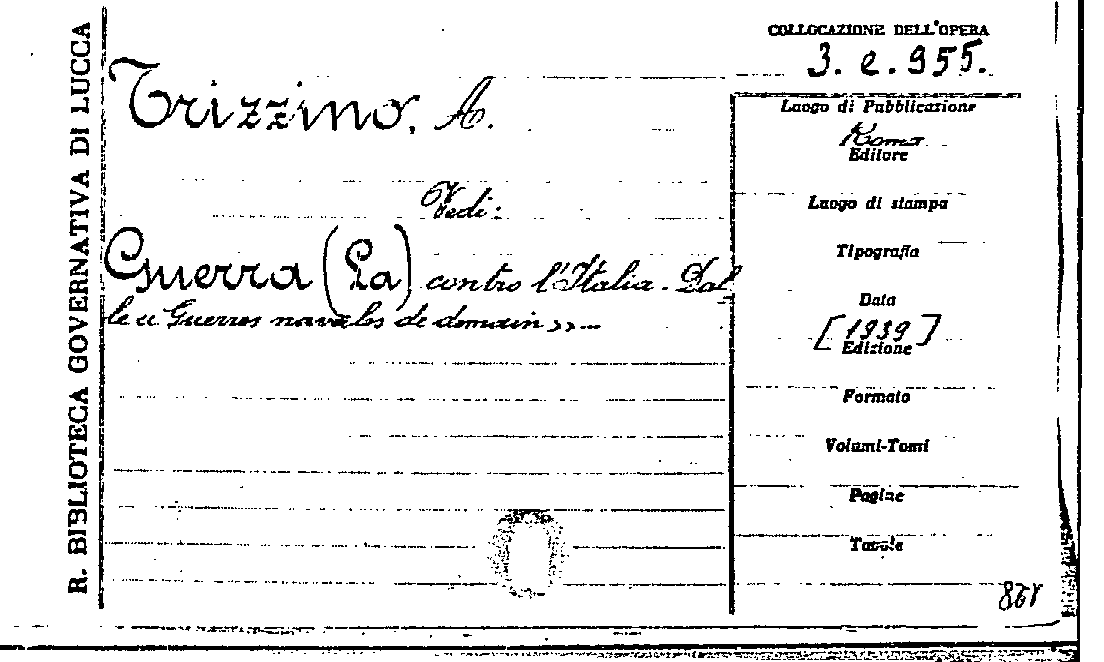 R. BIBLIOTECA GOVERNATIVA DI LUCCA
COLLOCAZIONE DELL'OPERA
3. e. 955.
Trizzino, A.
Vedi:
Guerra (La) contro l'Italia. Dal
le « Guerres navales de demain »...
Luogo di Pubblicazione
Roma
Editore
Luogo di stampa
Tipografia
Data
[1939]
Edizione
Formato
Volumi-Tomi
Pagine
Tavole